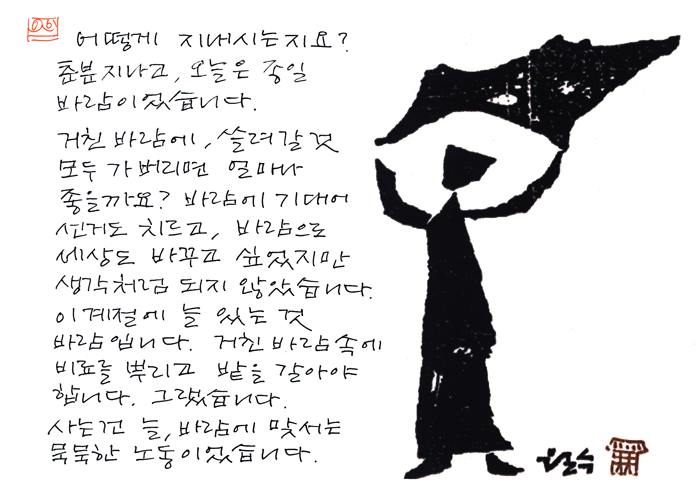 어떻게 지내시는지요?
춘분지나고, 오늘은 종일
바람이었습니다.
거친 바람에, 쓸려갈 것
모두 가버리면 얼마나
좋을까요? 바람에 기대어
선거도 치르고, 바람으로
세상도 바꾸고 싶었지만
생각처럼 되지 않았습니다.
이 계절에 늘 있는 것
바람입니다. 거친 바람속에
비료를 뿌리고 밭을 갈아야
합니다. 그랬습니다.
사는건 늘, 바람에 맞서는
묵묵한 노동이었습니다.
철수